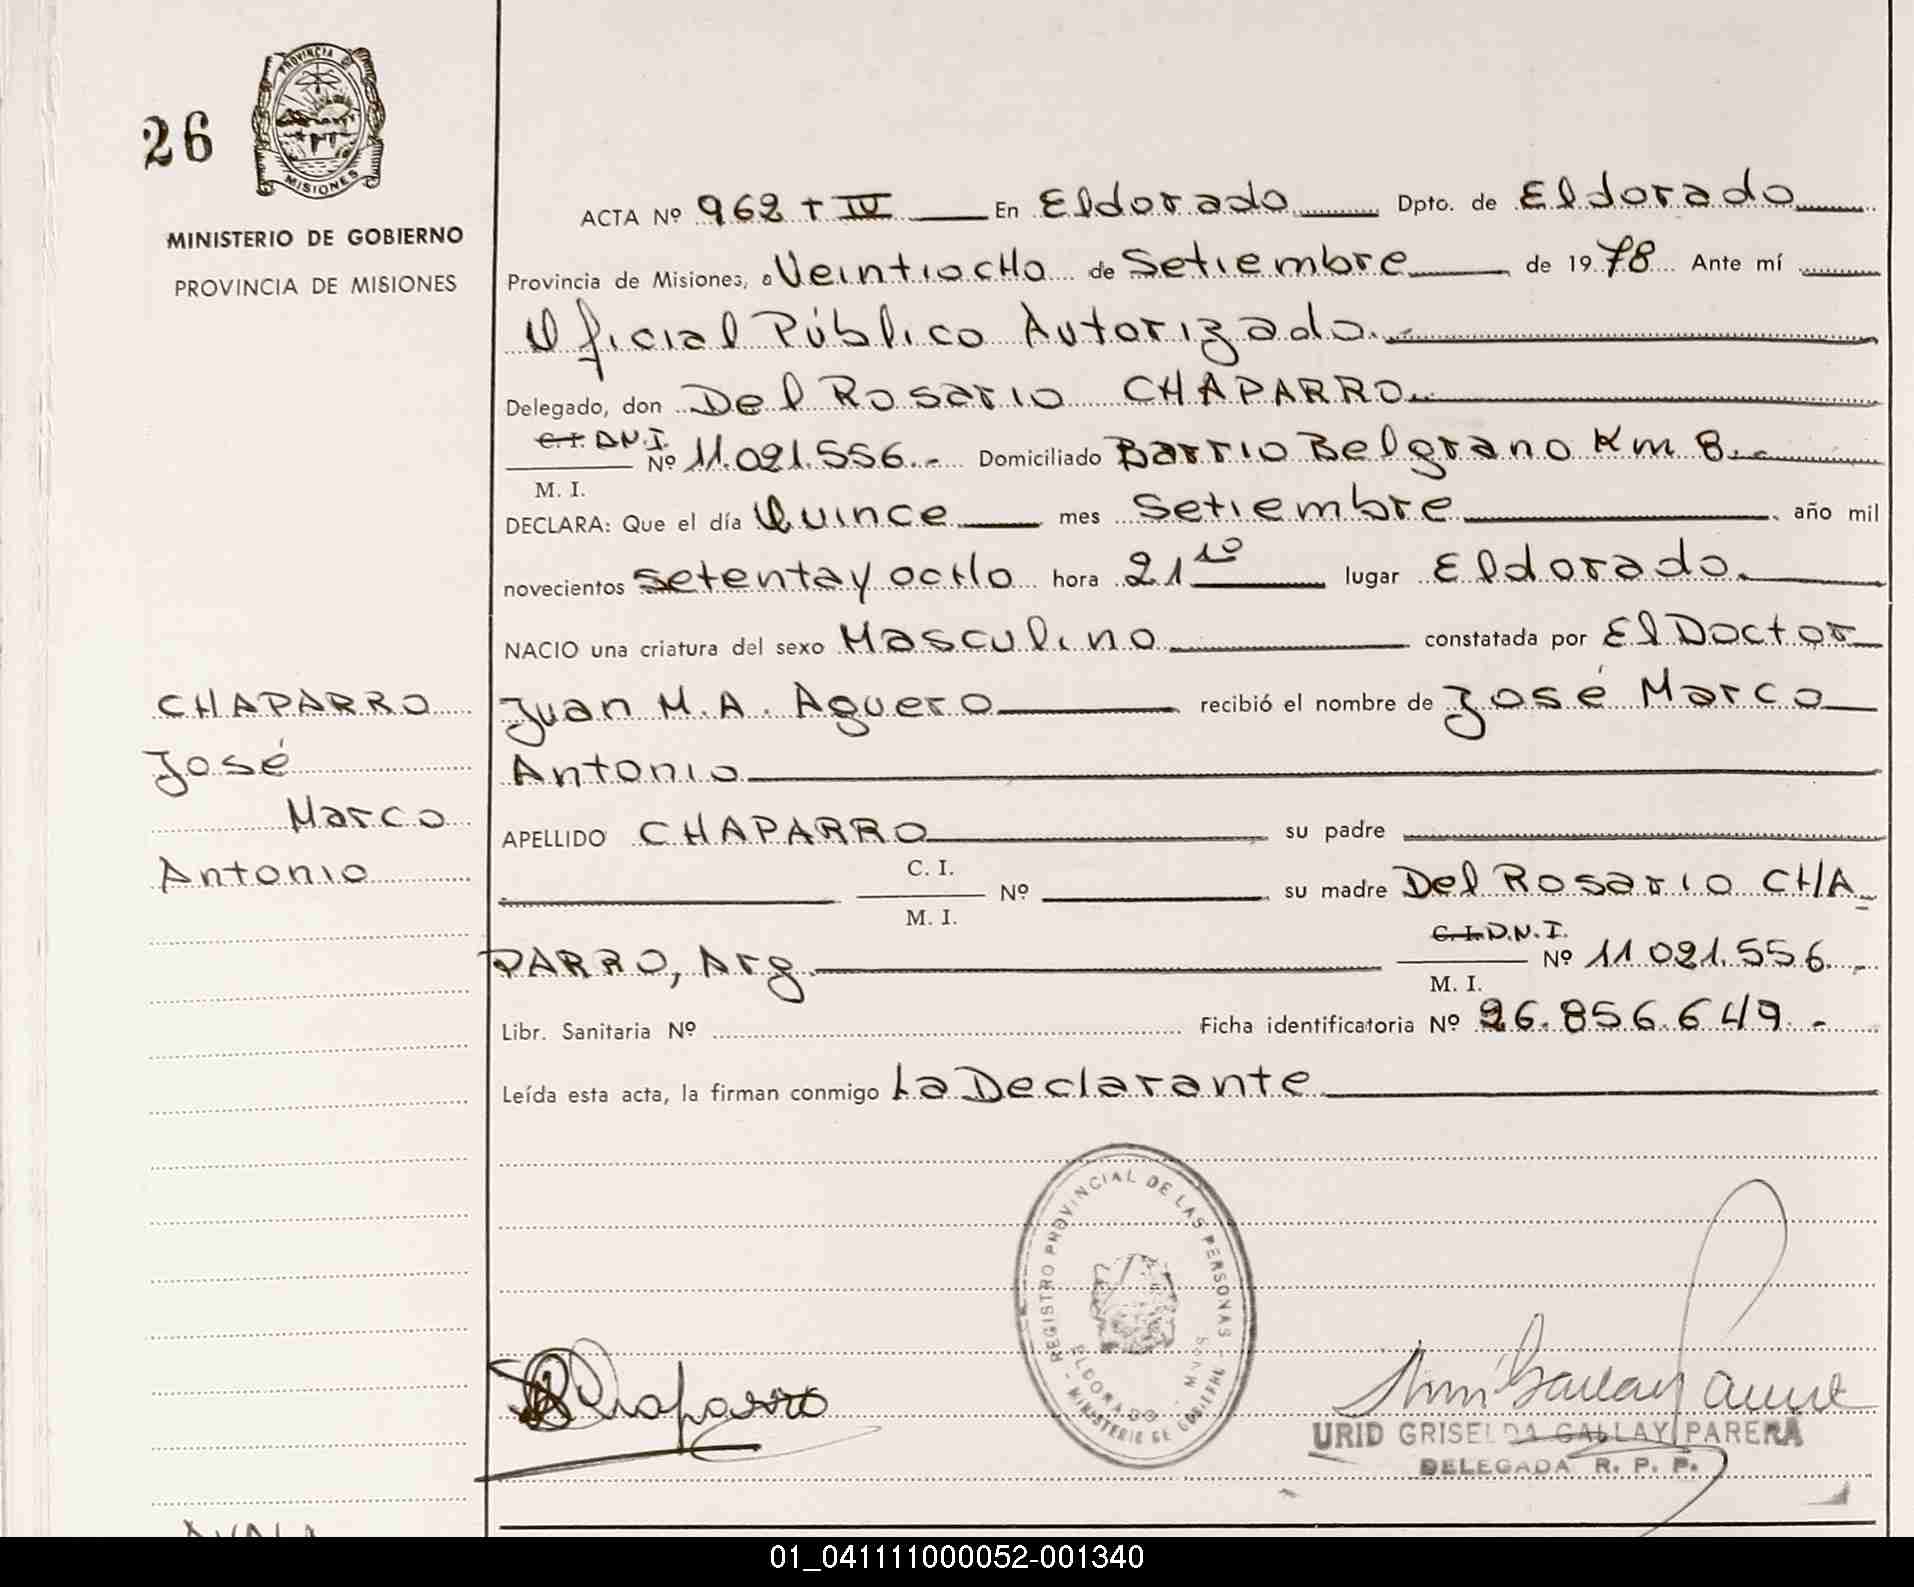 26
PROVINCIA DE
MISIONES
MINISTERIO DE GOBIERNO
PROVINCIA DE MISIONES
ACTA Nº 962 T IV En Eldorado Dpto. de Eldorado
Provincia de Misiones, a Veintiocho de Setiembre de 1978 Ante mí
Oficial Público Autorizado.
Delegado, don Del Rosario CHAPARRO
C.I. D.N.I.
Nº 11.021.556.- Domiciliado Barrio Belgrano Km 8.
M. I.
DECLARA: Que el día Quince mes Setiembre año mil
novecientos setenta y ocho hora 21 10 lugar Eldorado.
NACIO una criatura del sexo Masculino constatada por El Doctor
CHAPARRO
José
Marco
Antonio
Juan M.A. Aguero recibió el nombre de José Marco
Antonio
APELLIDO CHAPARRO su padre
C. I.
Nº su madre Del Rosario CHA-
M. I.
C.I. D.N.I.
PARRO, Arg. Nº 11 021.556.-
M. I.
Libr. Sanitaria Nº Ficha identificatoria Nº 26.856.649.-
Leída esta acta, la firman conmigo La Declarante
REGISTRO PROVINCIAL DE LAS PERSONAS
ELDORADO
MINISTERIO DE GOBIERNO
Chaparro
URID GRISELDA GALLAY PARERA
DELEGADA R. P. P.
01_041111000052-001340